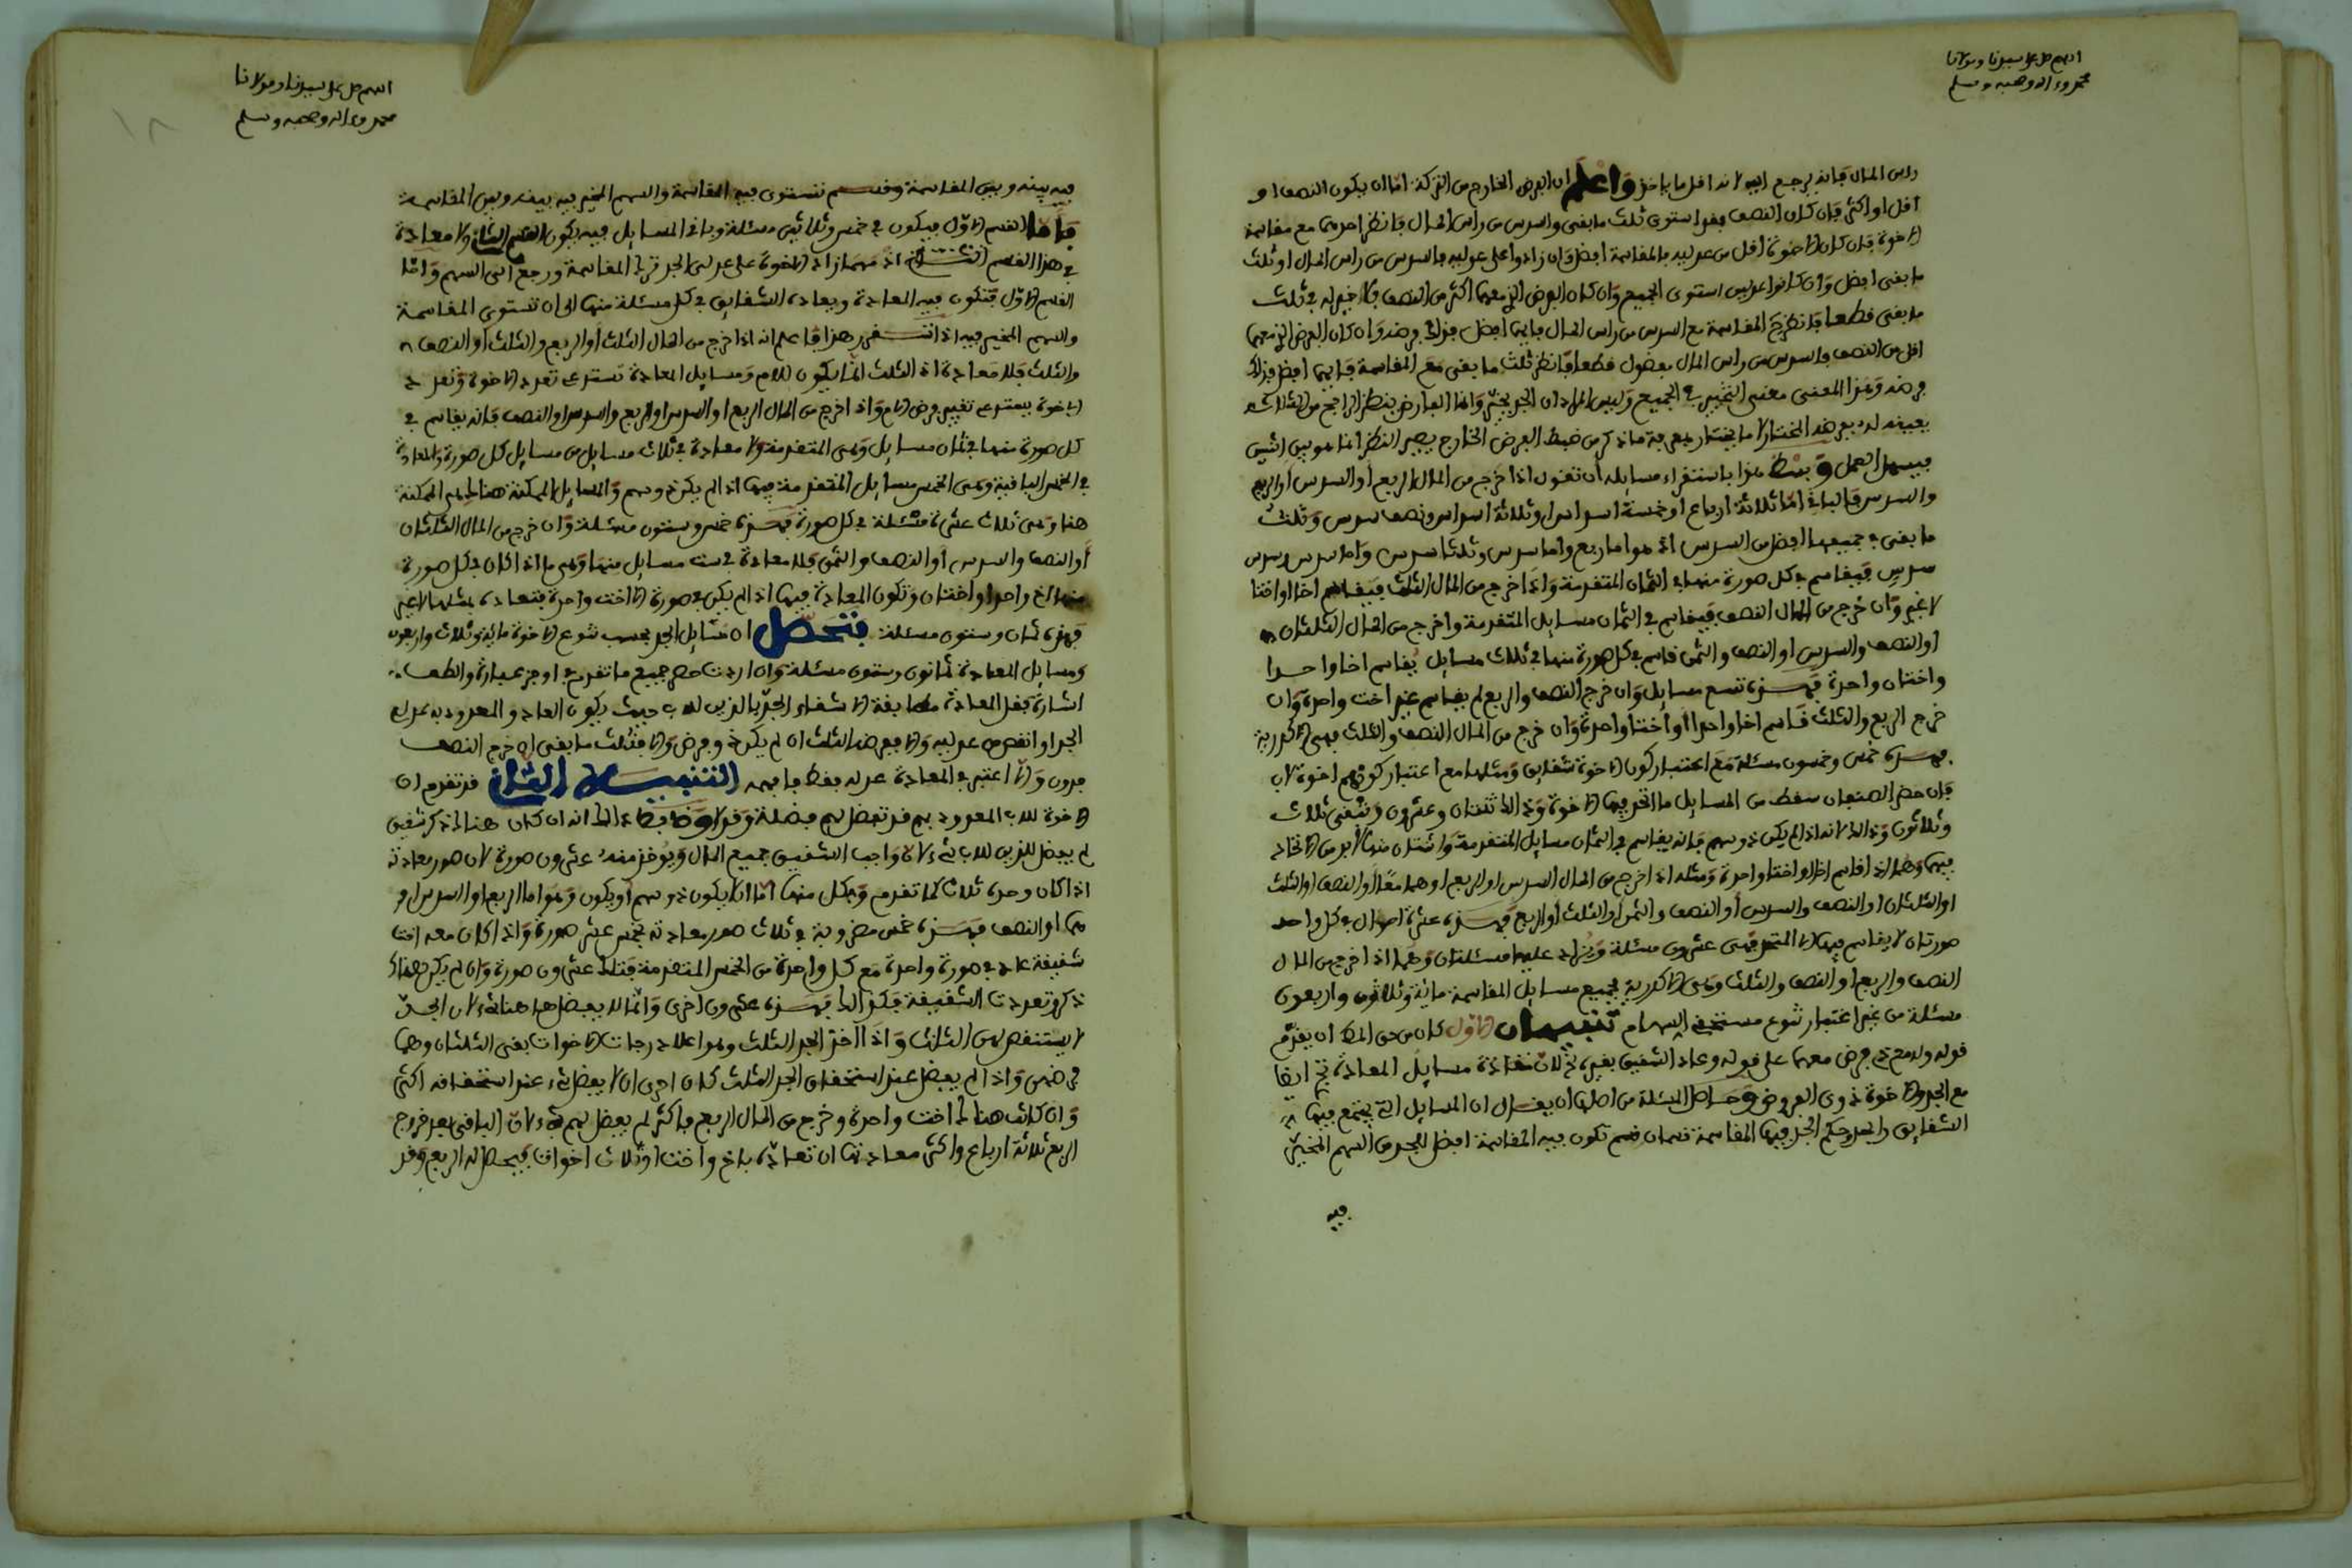 اللهم صل على سيدنا ومولانا
محمد وءاله وصحبه وسلم
راس المال فانه يرجع اليه لانه اقل ما ياخذ واعلم ان الفرض الخارج من التركة اما ان يكون النصف او
اقل او اكثر فان كان النصف فقد استوى ثلث ما بقى والسدس من راس المال فانظر احدهما مع مقاسمة
الاخوة فان كان الاخوة اقل من عدليه فالمقاسمة افضل وان زادوا على عدليه فالسدس من راس المال او ثلث
ما بقى افضل وان كانوا عدليه استوى الجميع وان كان الفرض الذى معهما اكثر من النصف فلا خير له فى ثلث
ما بقى قطعا فانظر المقاسمة مع السدس من راس المال فايهما افضل فذلك فرضه وان كان الفرض الذى معهما
اقل من النصف فالسدس من راس المال مفضول قطعا فانظر ثلث ما بقى مع المقاسمة فايهما افضل فذلك
فرضه وهذا المعنى معنى التخيير فى الجميع وليس المراد ان الجد يخير وانما الفارض ينظر الارجح من الثلاثة
فيسهل العمل وبسط هذا باستقراء مسايله ان تقول اذا خرج من المال الربع او السدس او الربع
والسدس فالباقى اما ثلاثة ارباع او خمسة اسداس او ثلاثة اسداس ونصف سدس وثلث
ما بقى فى جميعها افضل من السدس اذ هو اما ربع واما سدس وثلثا سدس واما سدس وسدس
سدس فيقاسم فى كل صورة منها فى الثمان المتقدمة واذا خرج من المال الثلث فيقاسم اخا او اختا
لا غير وان خرج من المال النصف فيقاسم فى الثمان مسايل المتقدمة واذا خرج من المال الثلثان
او النصف والسدس او النصف والثمن قاسم فى كل صورة منها فى ثلاث مسايل يقاسم اخا واحدا
واختان واحدة فهذه تسع مسايل وان خرج النصف والربع لم يقاسم غير اخت واحدة وان
خرج الربع والثلث قاسم اخا واحدا او اختا واحدة وان خرج من المال النصف والثلث فهى الاكدرية
فهذه خمس وخمسون مسئلة مع اعتبار كون الاخوة شقايق ومثلها مع اعتبار كونهم اخوة لاب
فان حضر الصنفان سقط من المسايل ما اتحد فيها الاخوة وذلك ثنتان وعشرون وتبقى ثلاث
وثلاثون وذلك لانه اذا لم يكن ذو سهم فانه يقاسم فى الثمان مسايل المتقدمة واثنتان منها لابد من الاتحاد
فيهما وهما اذا قاسم اخا او اختا واحدة ومثله اذا خرج من المال السدس او الربع او هما معا او النصف او الثلث
او الثلثان او النصف والسدس او النصف والثمن او الثلث او الربع فهذه عشرة احوال فى كل واحد
صورتان لا يقاسم فيهما الا المتحد فهى عشرون مسئلة ويزاد عليها مسئلتان وهما اذا خرج من المال
النصف والربع او النصف والثلث وهى الاكدرية فجميع مسايل المقاسمة مائة وثلاثة واربعون
مسئلة من غير اعتبار تنوع مستحقى السهام تنبيهان الاول كان من حق المص ان يقدم
قوله وله مع ذى فرض معهما على قوله وعاد الشقيق بغيره ثم لان قاعدة مسايل المعادة تجرى ايضا
مع الجد والاخوة ذوى الفروض وحاصل المسئلة من اصلها ان يقال ان المسايل التى يجتمع فيها
الشقايق والجد وحكم الجد فيها المقاسمة قسمان قسم تكون فيه المقاسمة افضل للجد من السهم المخير
فيه
اللهم صل على سيدنا ومولانا
محمد وءاله وصحبه وسلم
١٨
فيه بينه وبين المقاسمة وقسم تستوى فيه المقاسمة والسهم المخير فيه بينه وبين المقاسمة
فاما القسم الاول فيكون فى خمس وثلاثين مسئلة وباقى المسايل فيه يكون القسم الثانى ولا معادة
فى هذا القسم الثانى اذ مهما زاد الاخوة على عدلى الجد ترك المقاسمة ورجع الى السهم واما
القسم الاول فتكون فيه المعادة ويعاد الشقايق فى كل مسئلة منها الى ان تستوى المقاسمة
والسهم المخير فيه اذا تقرر هذا فاعلم انه اذا خرج من المال الثلث او الربع والثلث او النصف
والثلث فلا معادة اذ الثلث انما يكون للام ومسايل المعادة تستدعى تعدد الاخوة وتعدد
الاخوة يستدعى تغيير فرض الام واذا خرج من المال الربع او السدس او الربع والسدس او النصف فانه يقاسم فى
كل صورة منها فى ثمان مسايل وهى المتقدمة ولا معادة فى ثلاث مسايل من مسايل كل صورة والمعادة
فى الخمس الباقية وهى الخمس مسايل المتقدمة فيما اذا لم يكن ذو سهم والمسايل الممكنة هناك هى الممكنة
هنا وهى ثلاث عشرة مسئلة فى كل صورة فهذه خمس وستون مسئلة وان خرج من المال الثلثان
او النصف والسدس او النصف والثمن فلا معادة فى ست مسايل منها وهى ما اذا كان فى كل صورة
منها اخ واحد او اختان وتكون المعادة فيما اذا لم يكن فى صورة الا اخت واحدة فتعاد بمثلها لا غير
فهذه ثمان وستون مسئلة فتحصل ان مسايل الجد بحسب تنوع الاخوة مائة وثلاث واربعون
ومسايل المعادة ثمانون وستون مسئلة وان اردت حصر جميع ما تقدم فى اوجز عبارة والطف
اشارة فقل المعادة مطابقة الاشقاء الجد بالذين للاب حيث يكون العاد والمعدود به عدلى
الجد او انقص من عدليه والا ففرضه الثلث ان لم يكن ذو فرض والا فثلث ما بقى ان خرج النصف
فدون والا اعتبر فى المعادة عدله فقط فافهمه التنبيه الثانى قد تقدم ان
الاخوة للاب المعدود بهم قد تفضل لهم فضلة وقد لا وضابط ذلك انه ان كان هناك ذكر شقيق
لم يفضل للذين للاب شىء لان واجب الشقيق جميع المال ويوخذ منه عشرون صورة لان صور معادته
اذا كان وحده ثلاث كما تقدم وفى كل منها اما ان لا يكون ذو سهم او يكون وهو اما الربع او السدس او
هما او النصف فهذه خمس مضروبة فى ثلاث صور معادته بخمس عشرة صورة واذا كان معه اخت
شقيقة عاد فى صورة واحدة مع كل واحدة من الخمس المتقدمة فتلك عشرون صورة وان لم يكن هناك
ذكر وتعددت الشقيقة فكذلك فهذه عشرون اخرى وانما لم يفضل هنا شىء لان الجد
لا يستنقص من الثلث واذا اخذ الجد الثلث وهو اعلا درجات الاخوات بقى الثلثان وهما
فرضهن واذا لم يفضل عند استحقاق الجد الثلث كان احرى ان لا يفضل شىء عند استحقاقه اكثر
وان كانت هناك اخت واحدة وخرج من المال الربع فاكثر لم يفضل لهم شىء لان الباقى بعد خروج
الربع ثلاثة ارباع واكثر معادتها ان تعاد باخ واخت او ثلاث اخوات فيحصل له الربع وقد